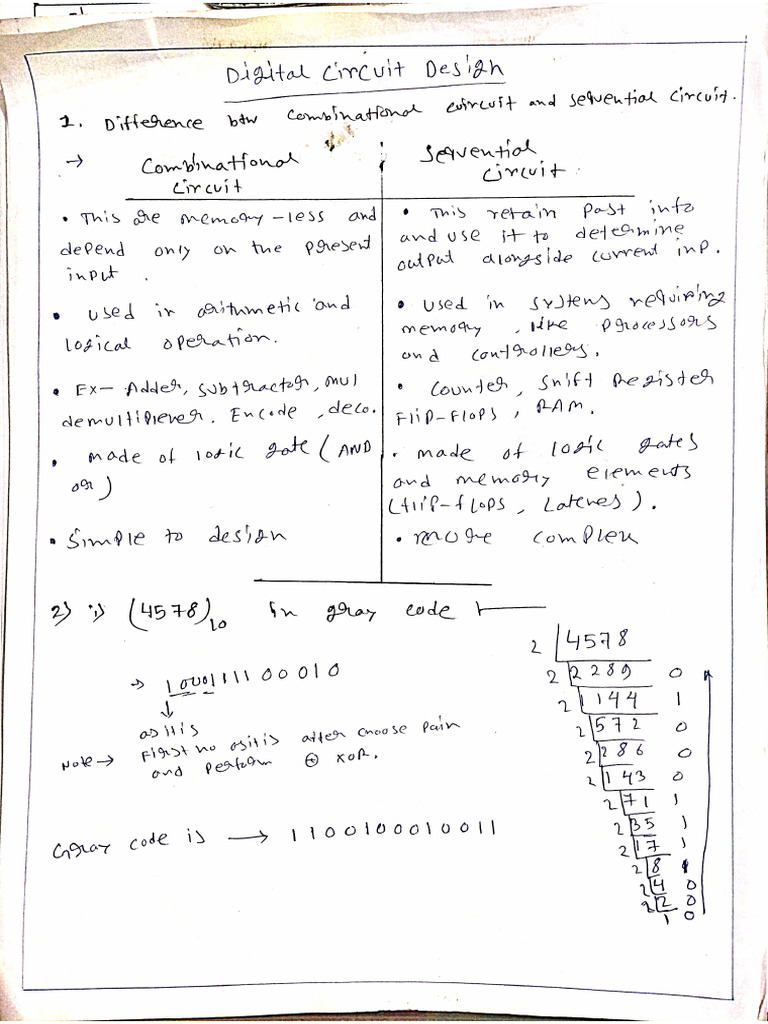 Digital Circuit Design
1. Difference btw Combinational Circuit and Sequential Circuit.
→ Combinational
Circuit
• This are memory-less and
depend only on the present
input.
• used in aritumetic and
logical operation.
• Ex- Adder, subtractor, mul
demultiplexer. Encode, deco.
• made of logic gate (AND
or)
• Simple to design
Sequential
Circuit.
• This retain past info
and use it to determine
output alongside current inp.
• used in systems requiring
memory, like processors
and controllers.
• Counter, Shift Register
Flip-Flops, RAM.
• made of logic gates
and memory elements
(flip-flops, Latches).
• more complex
2) i) (4578)10 in gray code
→ 1000111100010
↓
as it is
Note → First no as it is after choose pair
and perform ⊕ XOR.
Gray code is → 1100100010011
2 4578
2 2289 0
2 1144 1
2 572 0
2 286 0
2 143 0
2 71 1
2 35 1
2 17 1
2 8 1
2 4 0
2 2 0
1 0